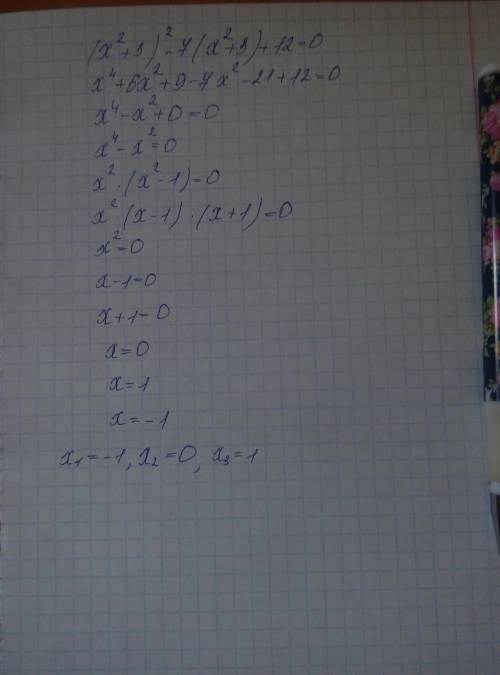 (x²+3)²-7(x²+3)+12=0
x⁴+6x²+9-7x²-21+12=0
x⁴-x²+0=0
x⁴-x²=0
x²·(x²-1)=0
x²(x-1)·(x+1)=0
x²=0
x-1=0
x+1=0
x=0
x=1
x=-1
x₁=-1, x₂=0, x₃=1